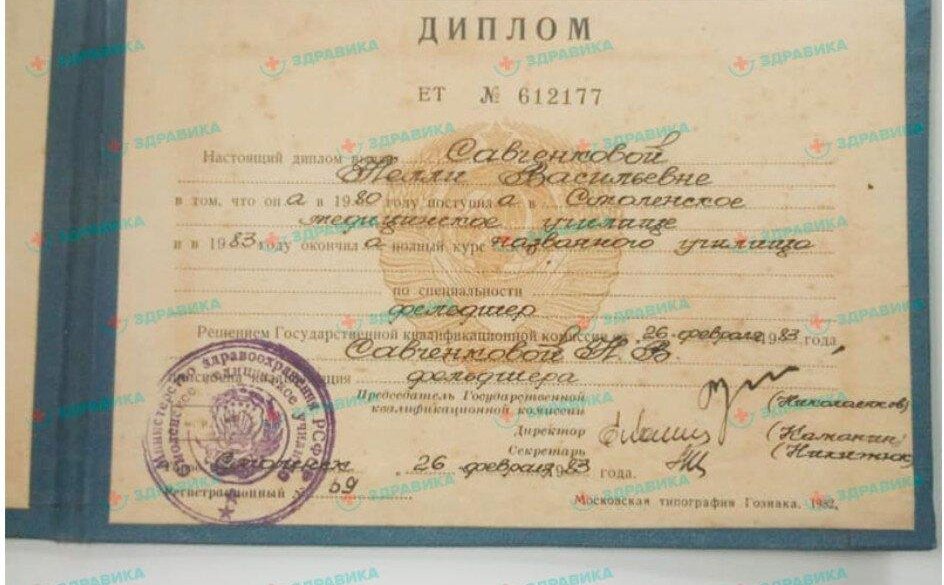 ДИПЛОМ
ЕТ № 612177
Настоящий диплом выдан Савченковой
Нелли Васильевне
в том, что она в 1980 году поступила в Смоленское
медицинское училище
и в 1983 году окончила полный курс названного училища
по специальности
фельдшер
Решением Государственной квалификационной комиссии от 26 февраля 1983 года
Савченковой Н. В.
присвоена квалификация фельдшера
Председатель Государственной
квалификационной комиссии (Николаенков)
Директор (Каманин)
Секретарь (Никитюк)
Город Смоленск 26 февраля 1983 года.
Регистрационный № 59
Московская типография Гознака. 1982.
Министерство здравоохранения РСФСР
Смоленское медицинское училище
ЗДРАВИКА